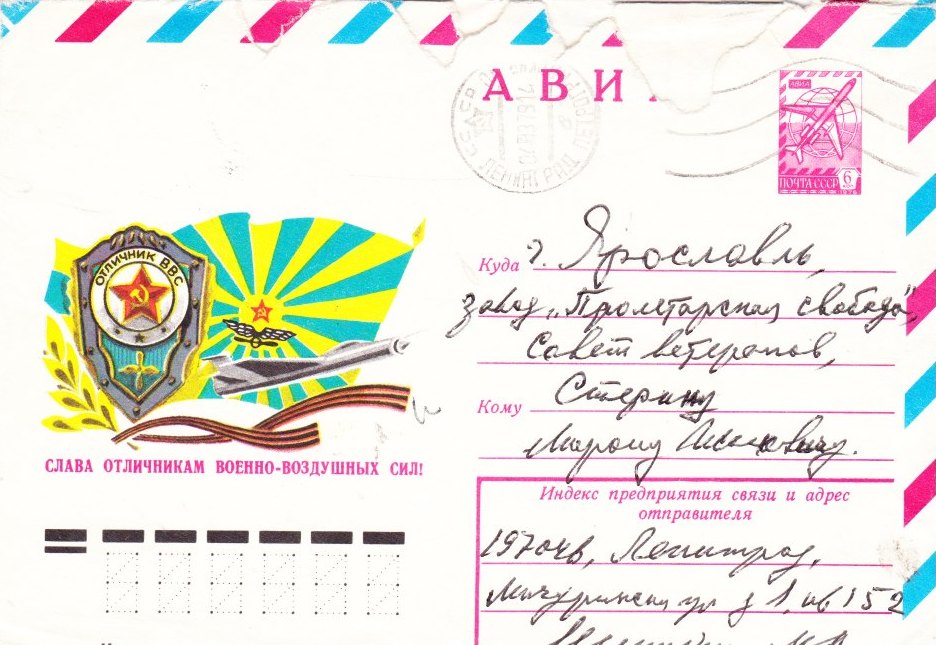 АВИ
АВИА
ПОЧТА СССР 6
СССР
ЛЕНИНГРАД
ОТЛИЧНИК ВВС
СЛАВА ОТЛИЧНИКАМ ВОЕННО-ВОЗДУШНЫХ СИЛ!
Куда г. Ярославль,
завод „Пролетарская свобода",
Совет ветеранов,
Кому Стерину
Мирону
Индекс предприятия связи и адрес
отправителя
Ленинград,
Мичуринская ул д 1, кв 152